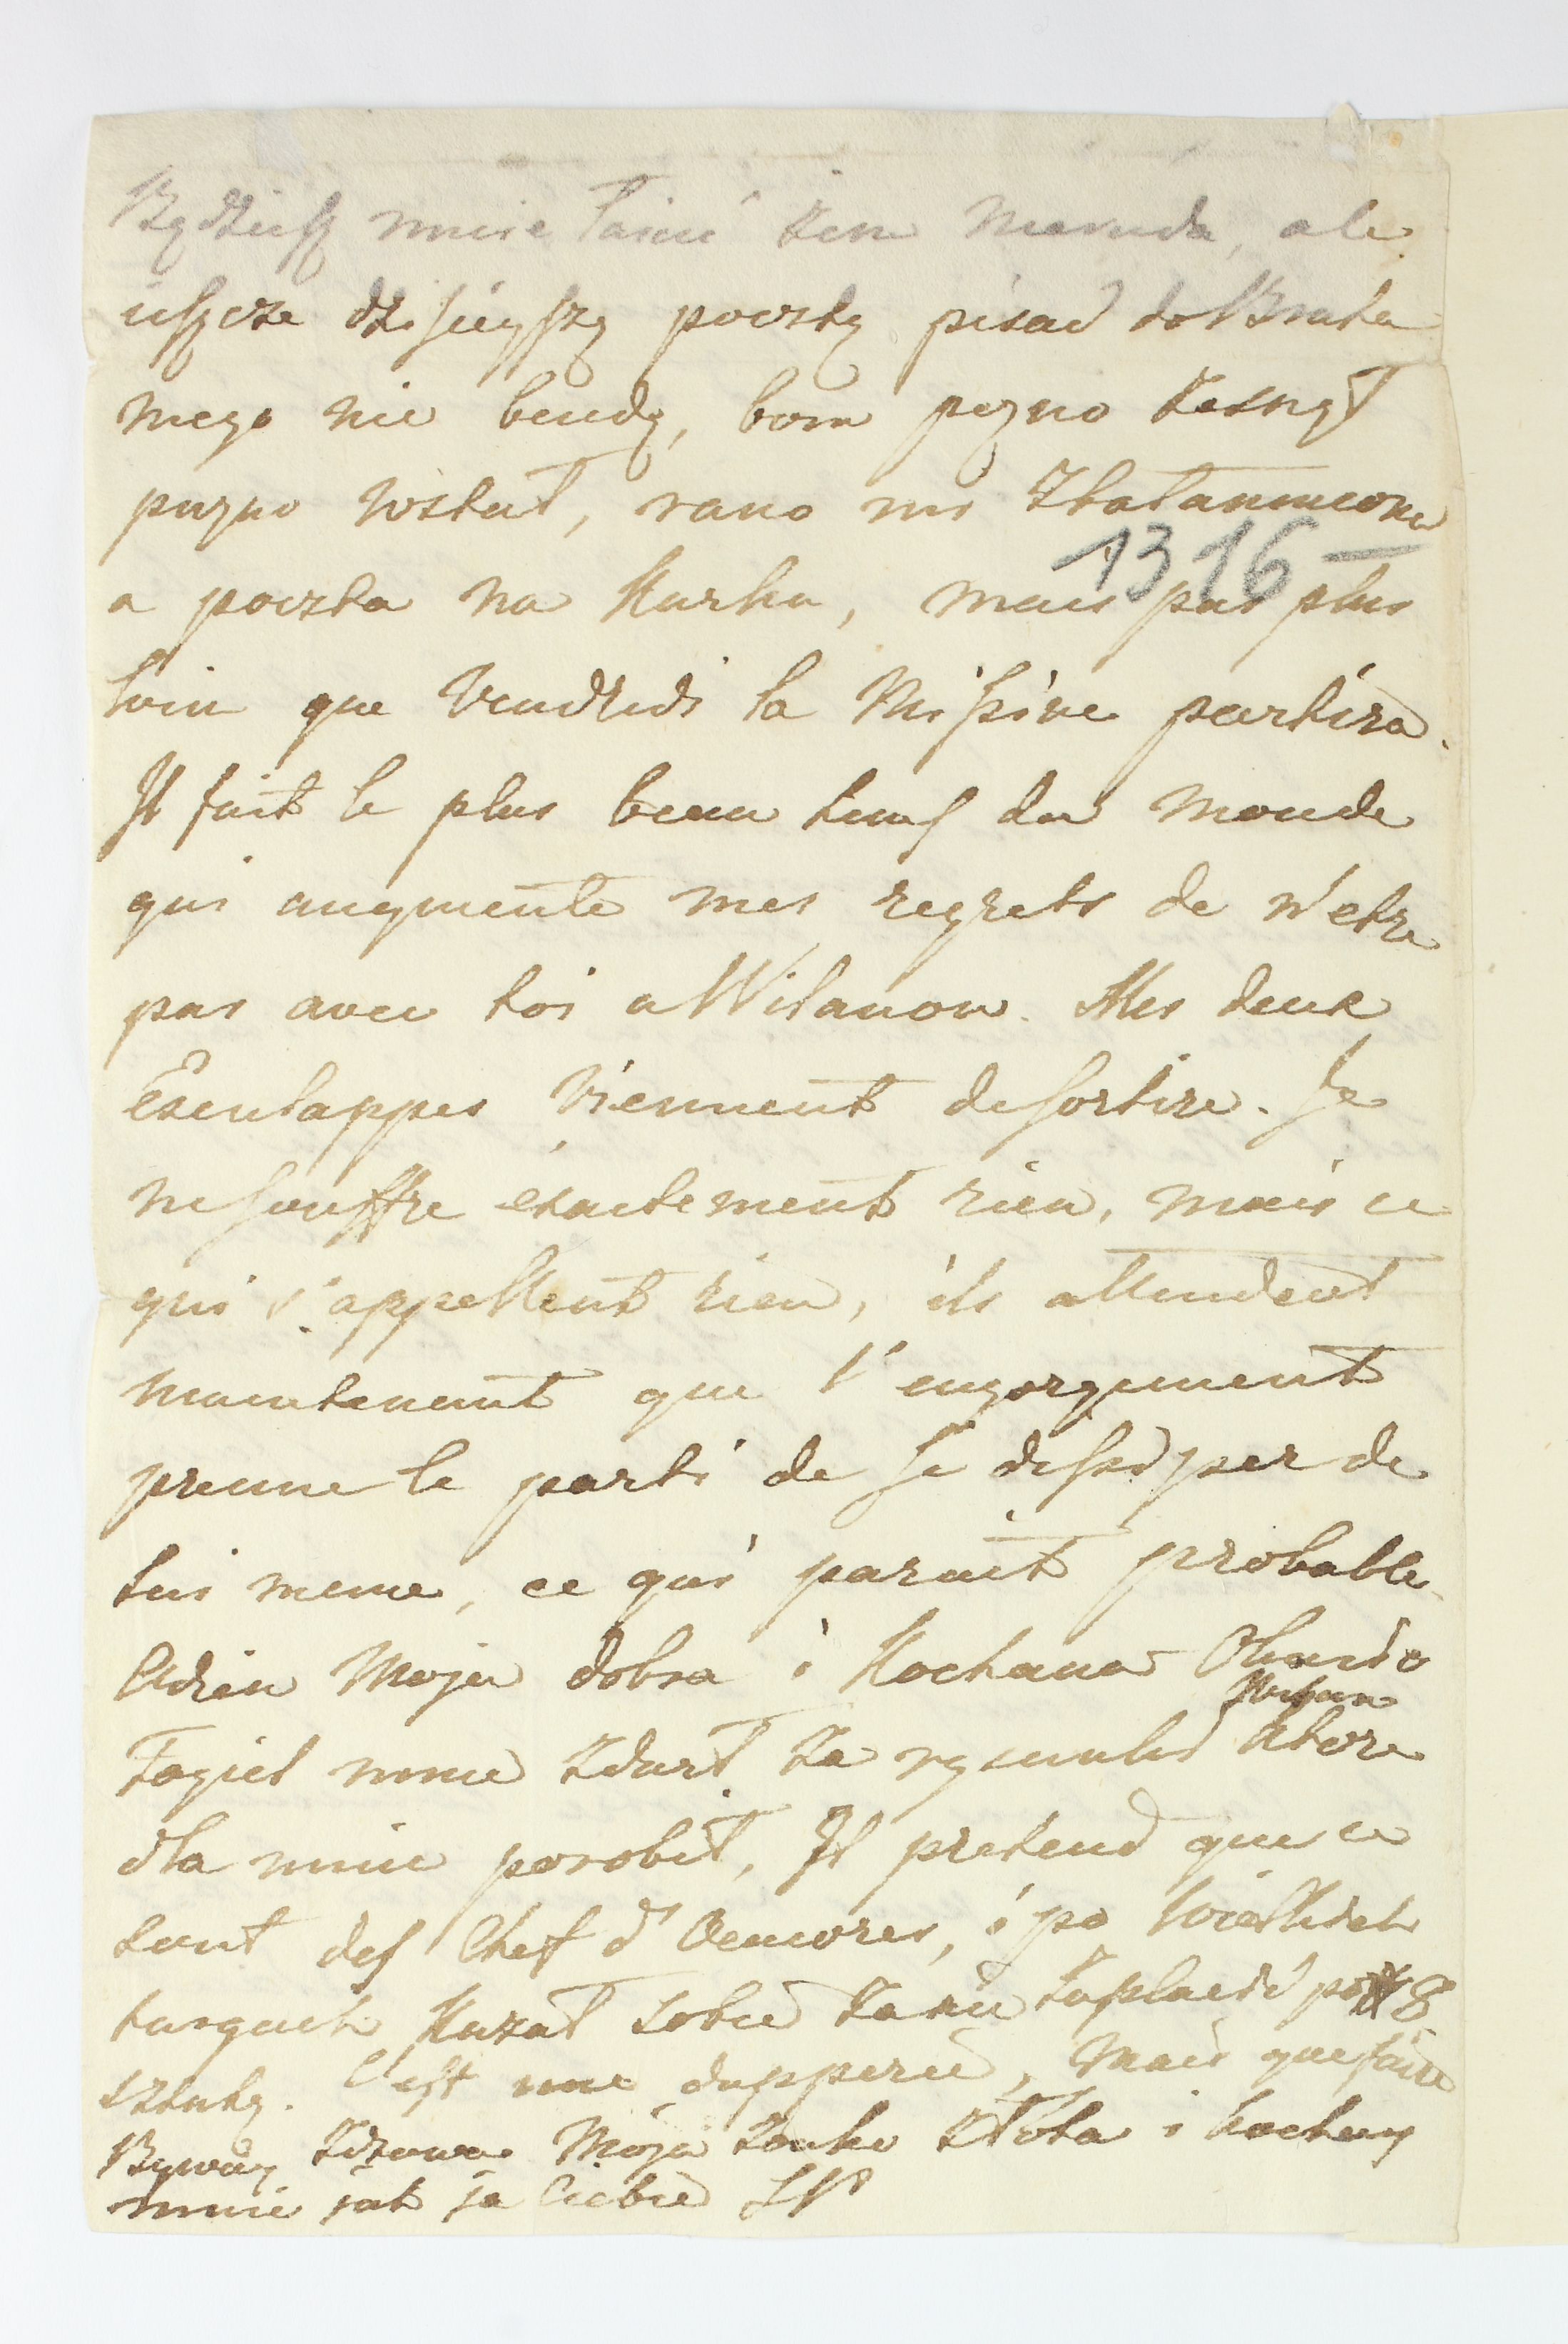 Będziesz mnie łaiać żem Maruda, ale
ieszcze dzisieyszą pocztą pisać do Brata
mego nie bendę, bom pozno zasnął
puzno wstał, rano mi
a poczta na Karku, mais pas plus
1316 —
loin que Vendredi la Missive partira.
Il fait le plus beau tems du monde
qui augmente mes regrets de n'etre
pas avec toi a Wilanow. Mes deux
Esculappes viennent de sortire. Je
ne souffre éxactement rien, mais ce
qui s'appellent rien, ils attendent
maintenant que l'engorgement
prenne le parti de se dissiper de
lui meme, ce qui parait probable.
Adieu Moja dobra i Kochana Olesio
Fogiel mnie zdarł za rysunki Ktore
dla mnie porobił, Il pretend que ce
sont des Chef d'Oeuvres, i po wielkich
targach Kazał sobie za nie zapłacić po 8
sztukę. C'est une dupperie, Mais que faire
Byway zdrowa Moja Zonko złota i kochay
mnie jak ja Ciebie SP